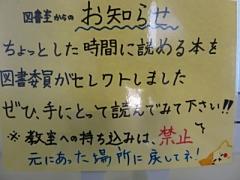 図書室からのお知らせ
ちょっとした時間に読める本を
図書委員がセレクトしました
ぜひ、手にとって読んでみて下さい!!
※教室への持ち込みは、禁止
元にあった場所に戻してネ!